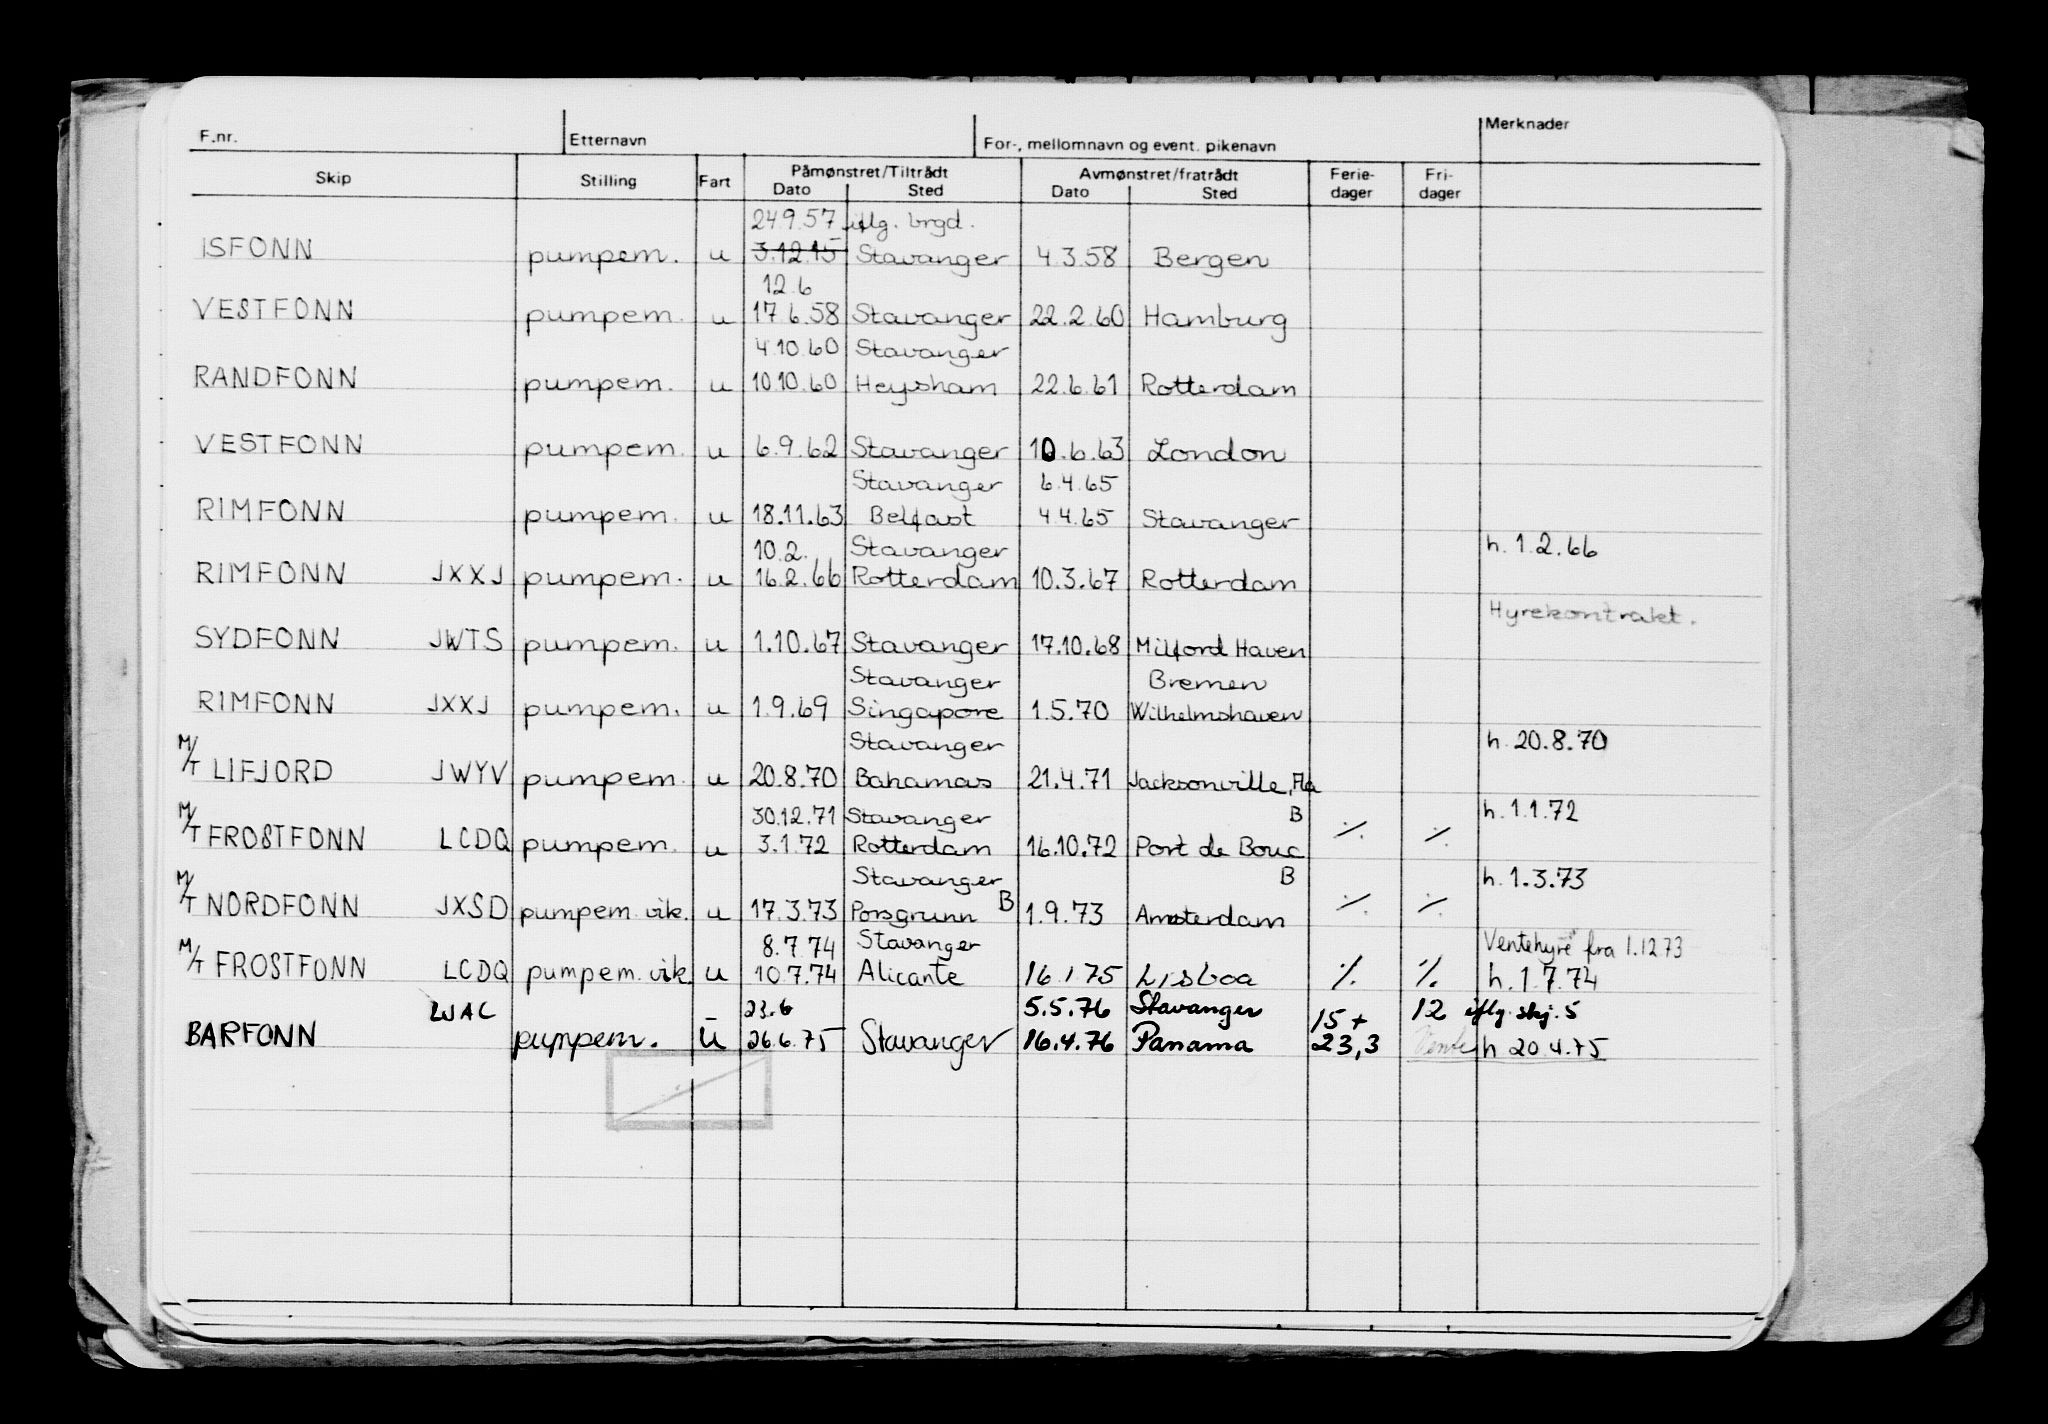 F.nr. Etternavn For-, mellomnavn og event. pikenavn Merknader
Skip Stilling Fart Påmønstret/Tiltrådt Avmønstret/fratrådt Ferie- Fri-
Dato Sted Dato Sted dager dager
24.9.57 iflg. brgd.
ISFONN pumpem. u 3.12.15 Stavanger 4.3.58 Bergen
12.6
VESTFONN pumpem. u 17.6.58 Stavanger 22.2.60 Hamburg
4.10.60 Stavanger
RANDFONN pumpem. u 10.10.60 Heysham 22.6.61 Rotterdam
VESTFONN pumpem. u 6.9.62 Stavanger 10.6.63 London
Stavanger 6.4.65
RIMFONN pumpem. u 18.11.63 Belfast 4.4.65 Stavanger
10.2. Stavanger h. 1.2.66
RIMFONN JXXJ pumpem. u 16.2.66 Rotterdam 10.3.67 Rotterdam
Hyrekontrakt.
SYDFONN JWTS pumpem. u 1.10.67 Stavanger 17.10.68 Milford Haven
Stavanger Bremen
RIMFONN JXXJ pumpem. u 1.9.69 Singapore 1.5.70 Wilhelmshaven
Stavanger h. 20.8.70
M/T LIFJORD JWYV pumpem. u 20.8.70 Bahamas 21.4.71 Jacksonville, Fla
30.12.71 Stavanger B h. 1.1.72
M/T FROSTFONN LCDQ pumpem. u 3.1.72 Rotterdam 16.10.72 Port de Bouc ./. ./.
Stavanger B h. 1.3.73
M/T NORDFONN JXSD pumpem. vik. u 17.3.73 Porsgrunn B 1.9.73 Amsterdam ./. ./.
8.7.74 Stavanger Ventehyre fra 1.12.73
M/T FROSTFONN LCDQ pumpem. vik. u 10.7.74 Alicante 16.1.75 Lisboa ./. ./. h. 1.7.74
23.6 5.5.76 Stavanger 15+ 12 iflg. skj. 5
BARFONN pumpem. u 26.6.75 Stavanger 16.4.76 Panama 23,3 Vente h 20.4.75